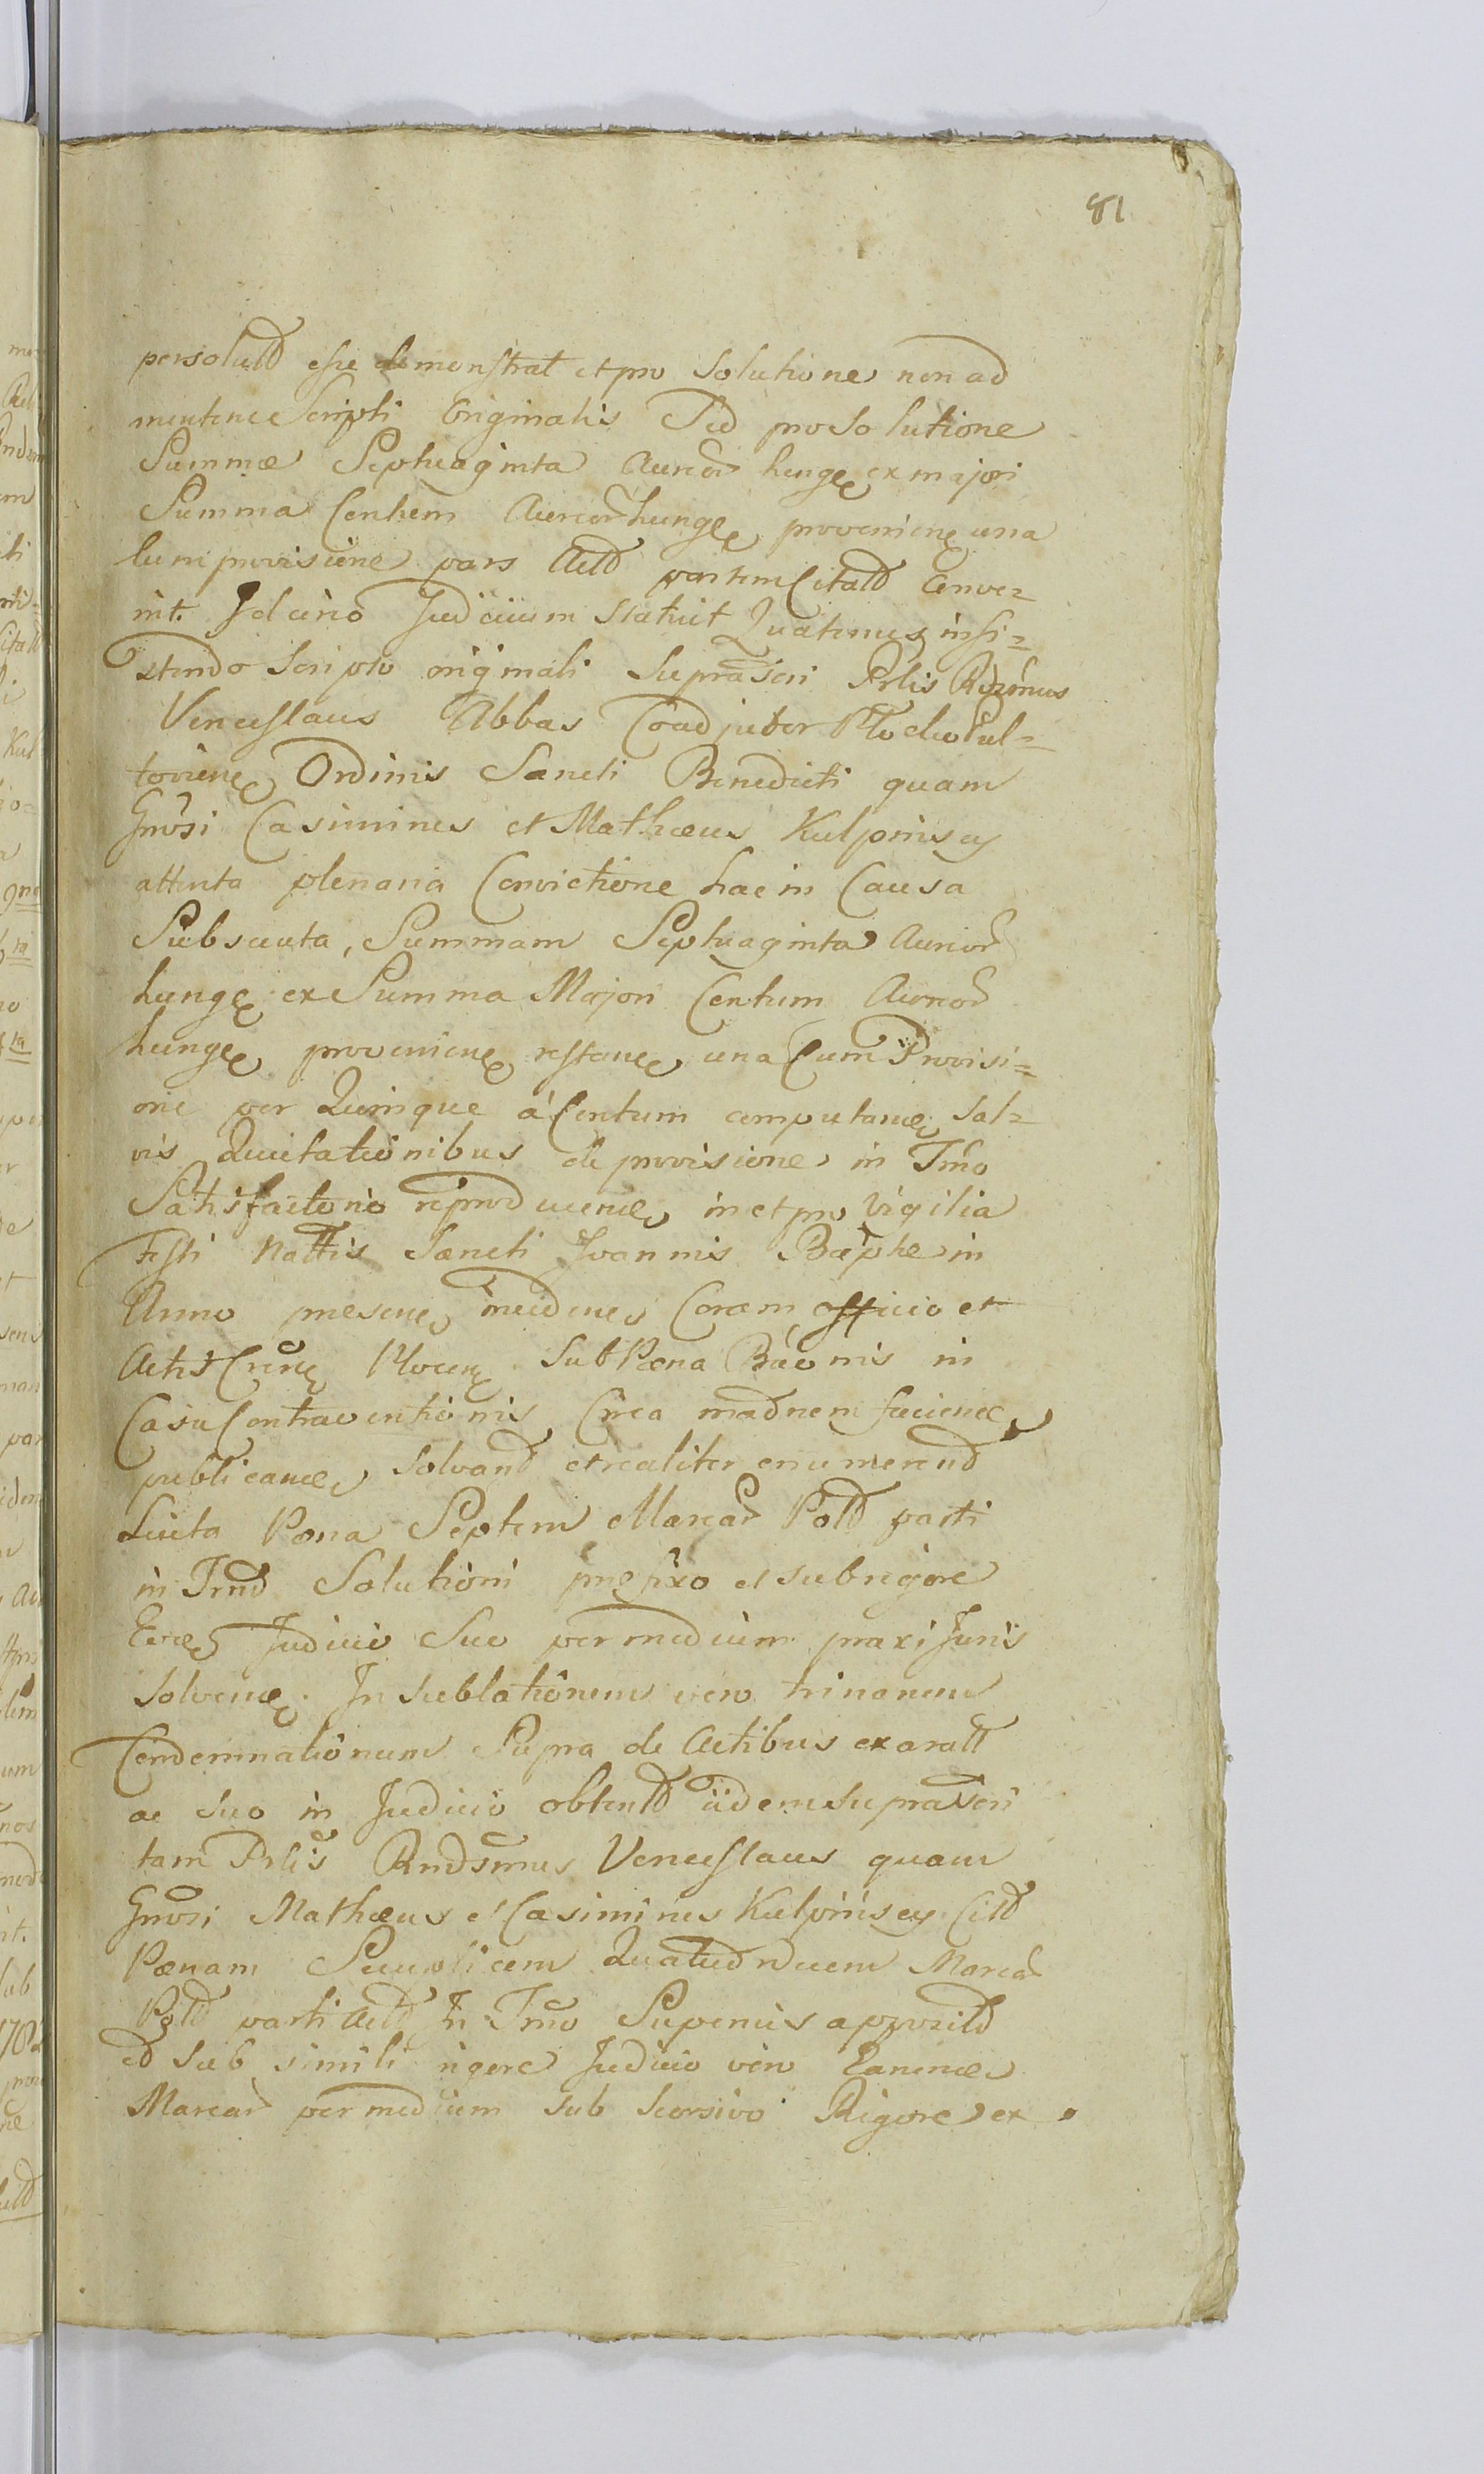 81
persolutd esse demonstrat et pro Solutione non ad
mentem Scripti Originalis Sed pro Solutione
Summæ Septuaginta Aureor hunge ex majori
Summa Centum Aureor hunge provenien una
cum provisione pars Actd partem Citatd Conve=
nit. Idcirco Judicium Statuit Quatenus insi=
stendo Scripto originali Suprascri Prlis Rdzmus
Venceslaus Abbas Coadjutor Płocko Pul=
toviene Ordinis Sancti Benedicti quam
Gnrosi Casimirus et Mathæus Kulpinscy
attenta plenaria Convictione hac in Causa
Subsecuta, Summam Septuaginta Aureor
hunge ex Summa Majori Centum Aureor
hunge provenien restane una Cum Provisi=
one per Quinque á Centum computane Sal=
vis Quietationibus de provisione in Tmo
Satisfactorio reproducene in et pro Vigilia
Festi Nattis Sancti Joannis Baptæ in
Anno presene incidene Coram officio et
Actis Crene Plocen Sub Pæna Báonis in
Casu Contraventionis Circa madnem faciene
publicane, Solvand et realiter enumerand
Lucta Pœna Septem Marcar Pold parti
in Trmo Solutioni præfixo et sub rigore
Judicio Suo per medium praxi Juris
Solvene. In Sublationem vero trinarum
Condemnationum Supra de Actibus exaratt
ac suo in Judicio obtentd iidem suprascri
tam Prlis Rndsmus Venceslaus quam
Gnrosi Mathæus et Casimirus Kulpinscy Citd
Pœnam Quatuordecem Marcar
Pold parti Actd In Tmo Superius apposittd
ed sub simili rigore Judicio vero Earune
Marcar per medium sub seorsivo Rigore ex